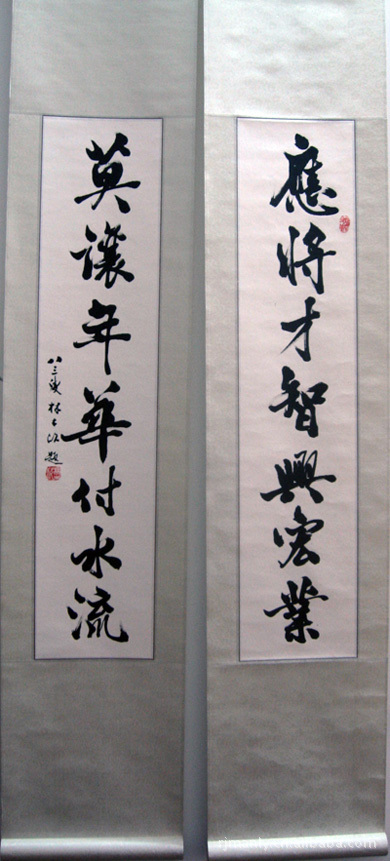 應將才智興宏業
莫讓年華付水流
八三叟林
題